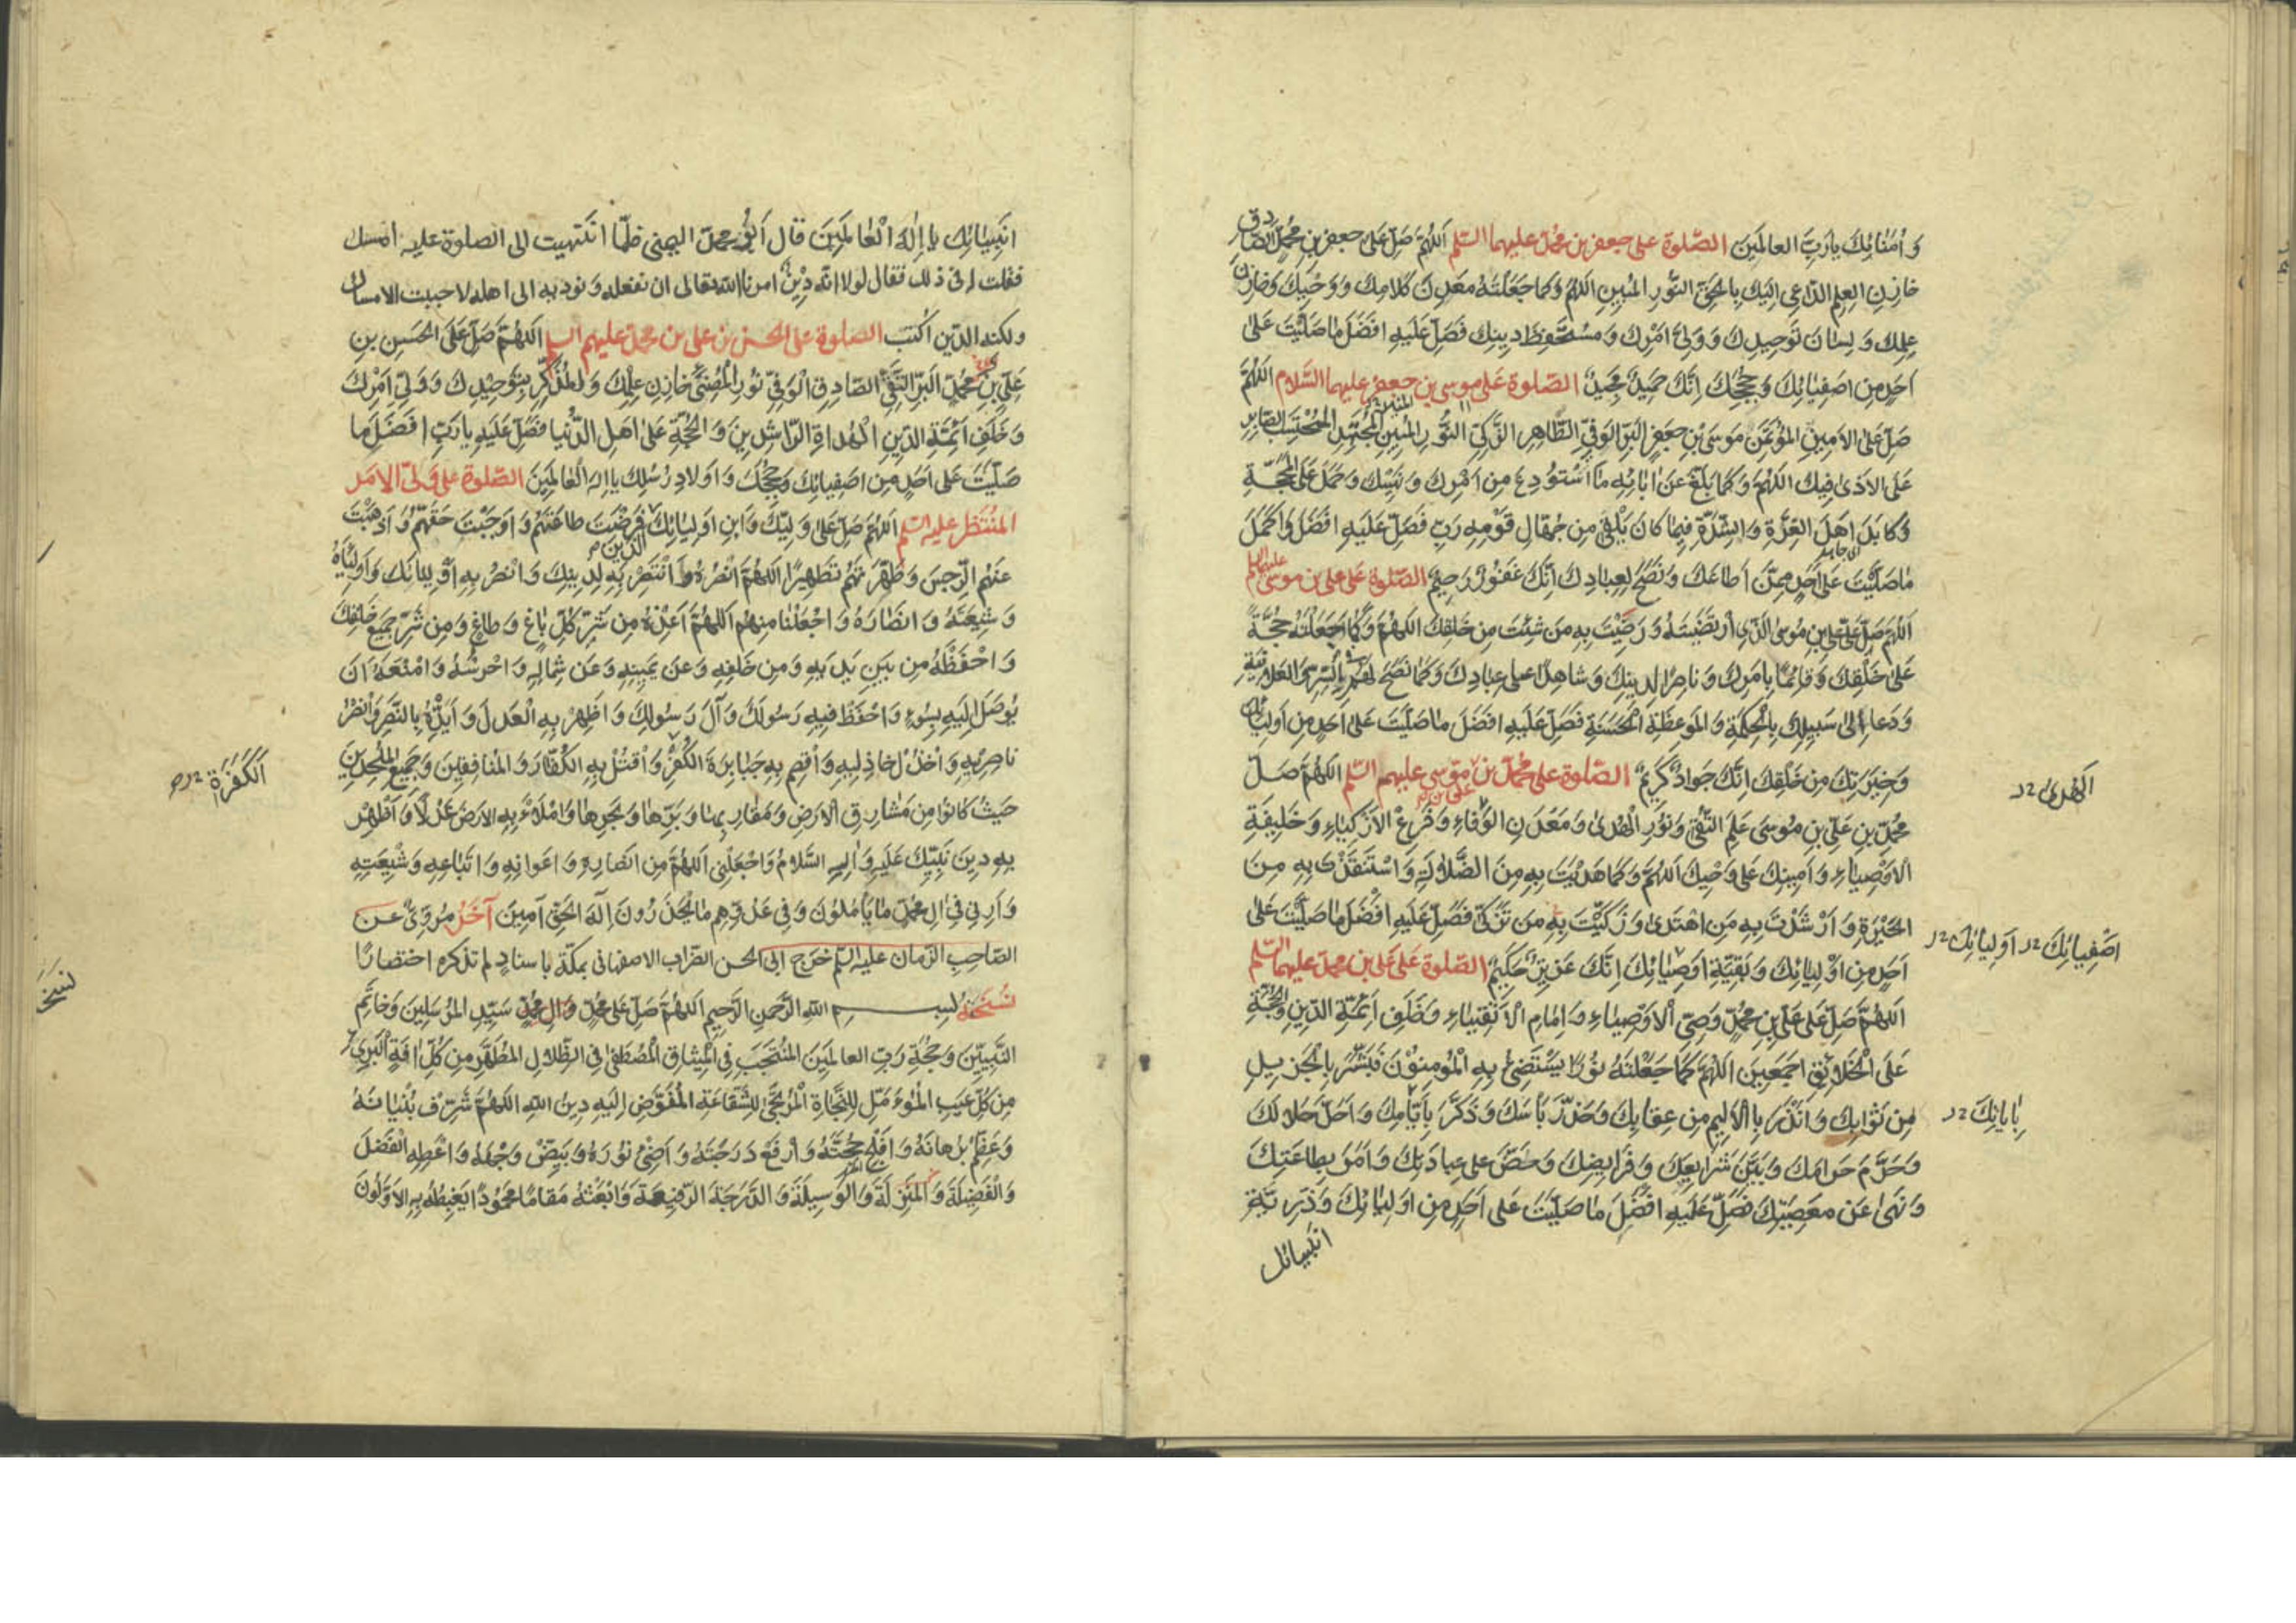 وَاُمَنٰائِكَ يارَبَّ العالَمينَ الصّلوة على جعفر بن محمّد عليهما السّلم اَللّهُمَّ صَلِّ عَلىٰ جعفرِ بنِ محمّدٍ الصّادِقِ
خازِنِ العِلمِ الدّاعى اِلَيكَ بِالحَقِّ النّورِ المُبينِ اَللّهُمَّ وَكما جَعَلتَهُ مَعدِنَ كَلامِكَ وَوَحيِكَ وَخازِنَ
عِلمِكَ وَلِسٰانَ تَوحيدِكَ وَوَلِىَّ اَمرِكَ وَمُستَحفِظَ دينِكَ فَصَلِّ عَلَيهِ اَفضَلَ مٰا صَلَّيتَ عَلىٰ
اَحَدٍ مِن اَصفِيائِكَ وَحُجَجِكَ اِنَّكَ حَميدٌ مَجيدٌ الصّلوة عَلى موسى بن جعفر عليهما السّلام اَللّهُمَّ
صَلِّ عَلَى الاَمينِ المُؤتَمَنِ موسَى بنِ جعفرٍ البَرِّ الوَفِىِّ الطّاهِرِ الزَّكِىِّ النّورِ المُبينِ المُجتَهِدِ المُحتَسِبِ الصّابِرِ
عَلَى الاَذىٰ فيكَ اَللّهُمَّ وَكَما بَلَّغَ عَن اٰبائِهِ مَا استُودِعَ مِن اَمرِكَ وَنَهيِكَ وَحَمَلَ عَلَى المَحَجَّةِ
وَكابَدَ اَهلَ العِزَّةِ وَالشِّدَّةِ فيما كانَ يَلقىٰ مِن جُهّالِ قَومِهِ رَبِّ فَصَلِّ عَلَيهِ اَفضَلَ وَاَكمَلَ
مٰا صَلَّيتَ عَلىٰ اَحَدٍ مِمَّن اَطاعَكَ وَنَصَحَ لِعِبادِكَ اِنَّكَ غَفورٌ رَحيمٌ الصّلوة على على بن موسى عليهما السلم
اَللّهُمَّ صَلِّ عَلىٰ عَلِىِّ بنِ مُوسَى الَّذِى ارتَضَيتَهُ وَرَضَّيتَ بِهِ مَن شِئتَ مِن خَلقِكَ اَللّهُمَّ وَكَما جَعَلتَهُ حُجَّةً
عَلىٰ خَلقِكَ وَقائِمًا بِاَمرِكَ وَناصِرًا لِدينِكَ وَشاهِدًا على عِبادِكَ وَكَما نَصَحَ لَهُم فِى السِّرِّ وَالعَلانِيَةِ
وَدَعا اِلىٰ سَبيلِكَ بِالحِكمَةِ وَالمَوعِظَةِ الحَسَنَةِ فَصَلِّ عَلَيهِ اَفضَلَ مٰا صَلَّيتَ عَلىٰ اَحَدٍ مِن اَولِيائِكَ
وَخِيَرَتِكَ مِن خَلقِكَ اِنَّكَ جَوادٌ كَريمٌ الصّلوة على محمّد بن على بن موسى عليهم السّلم اَللّهُمَّ صَلِّ
الهُدىٰ
محمّدِ بنِ عَلِىِّ بنِ موسىٰ عَلَمِ التُّقىٰ وَنورِ الهُدىٰ وَمَعدَنِ الوَفاءِ وَفَرعِ الاَزكِياءِ وَخَليفَةِ
الاَوصِياءِ وَاَمينِكَ عَلىٰ وَحيِكَ اَللّهُمَّ وَكَما هَدَيتَ بِهِ مِنَ الضَّلالَةِ وَاستَنقَذتَ بِهِ مِنَ
الحَيرَةِ وَاَرشَدتَ بِهِ مَنِ اهتَدىٰ وَزَكَّيتَ بِهِ مَن تَزَكّىٰ فَصَلِّ عَلَيهِ اَفضَلَ مٰا صَلَّيتَ عَلىٰ
اَصفِيائِكَ اَولِيائِكَ
اَحَدٍ مِن اَولِيائِكَ وَبَقِيَّةِ اَوصِيائِكَ اِنَّكَ عَزيزٌ حَكيمٌ الصّلوة عَلىٰ عَلى بن محمّد عليهما السّلم
اَللّهُمَّ صَلِّ عَلىٰ عَلِىِّ بنِ محمّدٍ وَصِىِّ الاَوصِياءِ وَاِمامِ الاَتقِياءِ وَخَلَفِ اَئِمَّةِ الدّينِ وَالحُجَّةِ
عَلَى الخَلائِقِ اَجمَعينَ اَللّهُمَّ كَما جَعَلتَهُ نورًا يَستَضيءُ بِهِ المُؤمِنونَ فَبَشَّرَ بِالجَزيلِ
مِن ثَوابِكَ وَاَنذَرَ بِالاَليمِ مِن عِقابِكَ وَحَذَّرَ بَأسَكَ وَذَكَّرَ بِاَيّامِكَ وَاَحَلَّ حَلالَكَ
بِاٰياتِكَ
وَحَرَّمَ حَرامَكَ وَبَيَّنَ شَرايِعَكَ وَفَرايِضَكَ وَحَضَّ على عِبادَتِكَ وَاَمَرَ بِطاعَتِكَ
وَنَهىٰ عَن مَعصِيَتِكَ فَصَلِّ عَلَيهِ اَفضَلَ ما صَلَّيتَ عَلى اَحَدٍ مِن اَولِيائِكَ وَذُرِّيَّةِ
انبيائك
انَبِيٰائِكَ يا اِلٰهَ العالَمينَ قال اَبو محمّد اليمنى فلمّا انتَهيت الى الصلوة عليه امسك
فقلت له فى ذلك فقال لولا انّه دِينٌ امرنا الله تعالى ان نفعله ونؤديه الى اهله لاحببت الامساك
ولكنه الدّين اكتب الصلوة على الحسن بن على بن محمّد عليهم السلم اَللّهُمَّ صَلِّ عَلَى الحَسَنِ بنِ
عَلِىِّ بنِ محمّدٍ البَرِّ التَّقِىِّ الصّادِقِ الوَفِىِّ النّورِ المُضيءِ خازِنِ عِلمِكَ وَالمُذَكِّرِ بِتَوحيدِكَ وَوَلِىِّ اَمرِكَ
وَخَلَفِ اَئِمَّةِ الدّينِ الهُداةِ الرّاشِدينَ وَالحُجَّةِ عَلىٰ اَهلِ الدُّنيا فَصَلِّ عَلَيهِ يارَبِّ اَفضَلَ ما
صَلَّيتَ عَلى اَحَدٍ مِن اَصفِيائِكَ وَحُجَجِكَ وَاَولادِ رُسُلِكَ يا اِلٰهَ العالَمينَ الصّلوة على ولىّ الامر
المُنتَظَر عليه السّلم اَللّهُمَّ صَلِّ عَلىٰ وَلِيِّكَ وَابنِ اَولِيائِكَ الَّذينَ فَرَضتَ طاعَتَهُم وَاَوجَبتَ حَقَّهُم وَاَذهَبتَ
عَنهُمُ الرِّجسَ وَطَهَّرتَهُم تَطهيرًا اَللّهُمَّ انصُرهُ وَانتَصِر بِهِ لِدينِكَ وَانصُر بِهِ اَولِيائَكَ وَاَولِياءَهُ
وَشيعَتَهُ وَانصٰارَهُ وَاجعَلنا مِنهُم اَللّهُمَّ اَعِذهُ مِن شَرِّ كُلِّ باغٍ وَطاغٍ وَمِن شَرِّ جَميعِ خَلقِكَ
وَاحفَظهُ مِن بَينِ يَدَيهِ وَمِن خَلفِهِ وَعَن يَمينِهِ وَعَن شِمالِهِ وَاحرُسهُ وَامنَعهُ اَن
يوصَلَ اِلَيهِ بِسوءٍ وَاحفَظ فيهِ رَسولَكَ وَآلَ رَسولِكَ وَاَظهِر بِهِ العَدلَ وَاَيِّدهُ بِالنَّصرِ وَانصُر
ناصِريهِ وَاخذُل خاذِليهِ وَاقصِم بِهِ جَبابِرَةَ الكُفرِ وَاقتُل بِهِ الكُفّارَ وَالمُنافِقينَ وَجَميعَ المُلحِدينَ
اَلكَفَرَةِ
حَيثُ كانوا مِن مَشارِقِ الاَرضِ وَمَغارِبِها وَبَرِّها وَبَحرِها وَاملَأ بِهِ الاَرضَ عَدلًا وَاَظهِر
بِهِ دينَ نَبِيِّكَ عَلَيهِ وَآلِهِ السَّلامُ وَاجعَلنى اَللّهُمَّ مِن اَنصارِهِ وَاَعوانِهِ وَاَتباعِهِ وَشيعَتِهِ
وَاَرِنى فى آلِ محمّدٍ ما يَأمُلونَ وَفى عَدُوِّهِم ما يَحذَرونَ اِلٰهَ الحَقِّ آمينَ آخَرُ مروىّ عن
الصّاحب الزّمان عليه السّلم خرج الى ابى الحسن الضراب الاصفهانى بمكّة باسنادٍ لم نذكره اختصارًا
نُسخَتُهُ بسم اللهِ الرَّحمنِ الرَّحيمِ اَللّهُمَّ صَلِّ عَلىٰ محمّدٍ وَآلِ محمّدٍ سَيِّدِ المُرسَلينَ وَخاتَمِ
نسخه
النَّبِيّينَ وَحُجَّةِ رَبِّ العالَمينَ المُنتَجَبِ فى الميثاقِ المُصطَفىٰ فِى الظِّلالِ المُطَهَّرِ مِن كُلِّ آفَةٍ البَرىءِ
مِن كُلِّ عَيبٍ المُؤَمَّلِ لِلنَّجاةِ المُرتَجىٰ لِلشَّفاعَةِ المُفَوَّضِ اِلَيهِ دينُ اللهِ اَللّهُمَّ شَرِّف بُنيانَهُ
وَعَظِّم بُرهانَهُ وَاَفلِج حُجَّتَهُ وَارفَع دَرَجَتَهُ وَاَضِئ نورَهُ وَبَيِّض وَجهَهُ وَاَعطِهِ الفَضلَ
وَالفَضيلَةَ وَالمَنزِلَةَ وَالوَسيلَةَ وَالدَّرَجَةَ الرَّفيعَةَ وَابعَثهُ مَقامًا مَحمودًا يَغبِطُهُ بِهِ الاَوَّلونَ